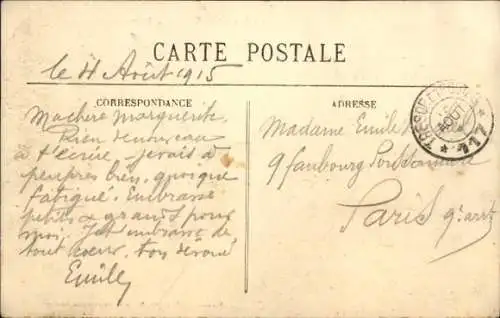 CARTE POSTALE
le 4 Août 1915
CORRESPONDANCE
Ma chère Marguerite
Rien de nouveau
à t'ecrire je vais à
peu près bien, quoique
fatigué. Embrasse
petits & grands pour
moi. Je t'embrasse de
tout coeur. ton dévoué
Emile
ADRESSE
Madame Emile
9 faubourg Poissonnière
Paris 9e arrt
TRESOR ET POSTES
AOUT
* 117 *